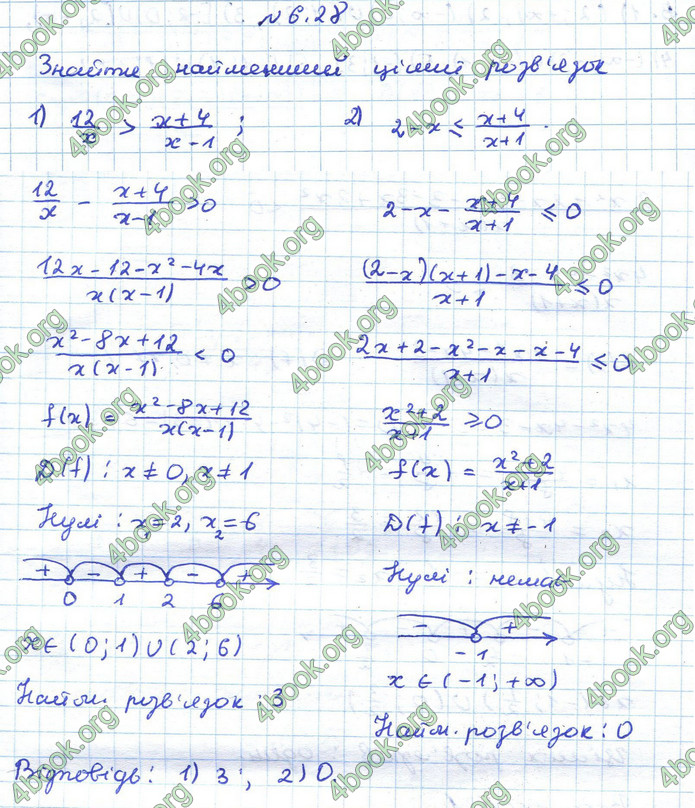 № 6.28
Знайти найменший цілий розв'язок
1) 12/x > (x+4)/(x-1) ;
2) 2-x ≤ (x+4)/(x+1) .
12/x - (x+4)/(x-1) > 0
(12x-12-x²-4x)/(x(x-1)) > 0
(x²-8x+12)/(x(x-1)) < 0
f(x) = (x²-8x+12)/(x(x-1))
D(f) : x≠0, x≠1
Нулі : x₁=2, x₂=6
+ - + - +
0 1 2 6
x ∈ (0;1) ∪ (2;6)
Найм. розв'язок : 3
2-x- (x+4)/(x+1) ≤ 0
((2-x)(x+1)-x-4)/(x+1) ≤ 0
(2x+2-x²-x-x-4)/(x+1) ≤ 0
(x²+2)/(x+1) ≥ 0
f(x) = (x²+2)/(x+1)
D(f) : x≠-1
Нулі : немає
- +
-1
x ∈ (-1; +∞)
Найм. розв'язок : 0
Відповідь : 1) 3 ; 2) 0.
4book.org